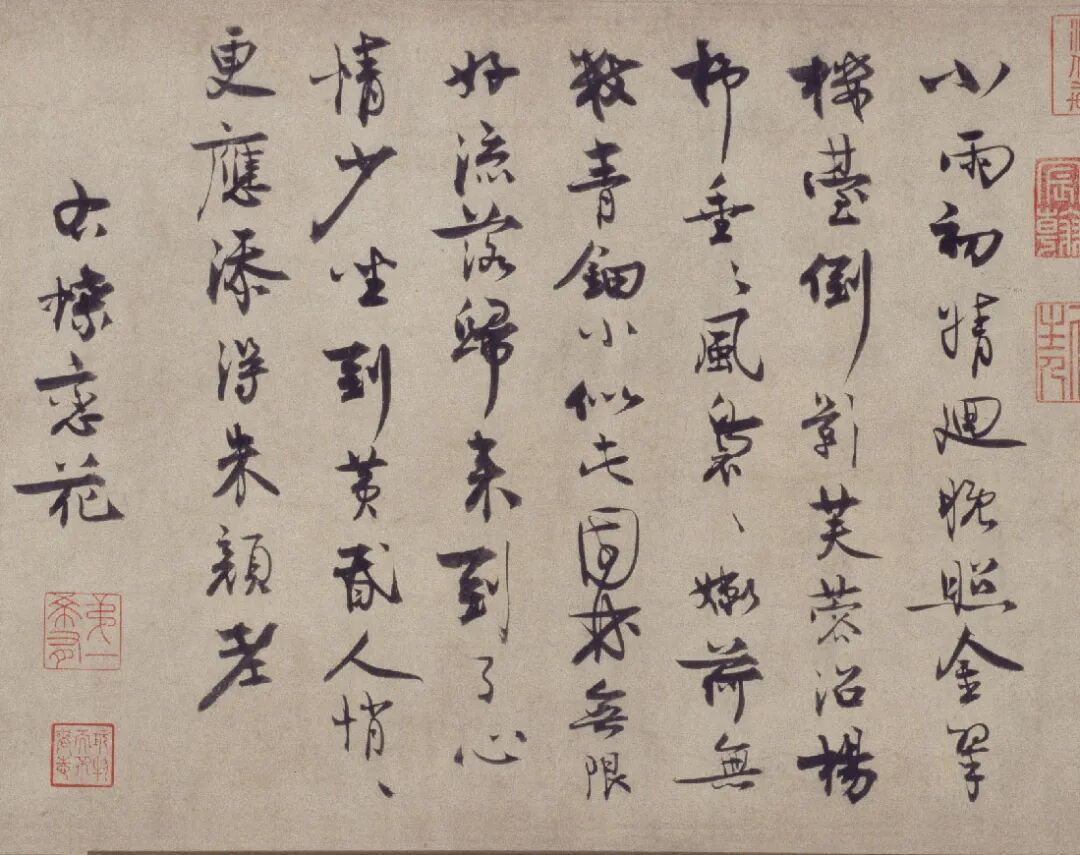 小雨初晴迴晚照金翠
樓臺倒影芙蓉沼楊
柳垂〻風裊〻嫩荷無
數青鈿小似此園林無限
好流落歸來到了心
情少坐到黃昏人悄〻
更應添得朱顏老
右蝶戀花
宸翰